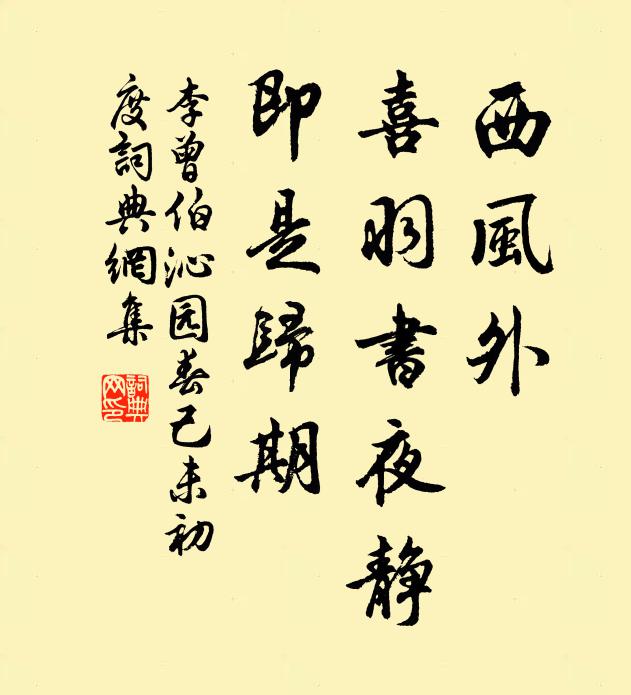 西風外
喜羽書夜静
即是歸期
李曾伯沁园春己未初
度詞典網集
詞典网印